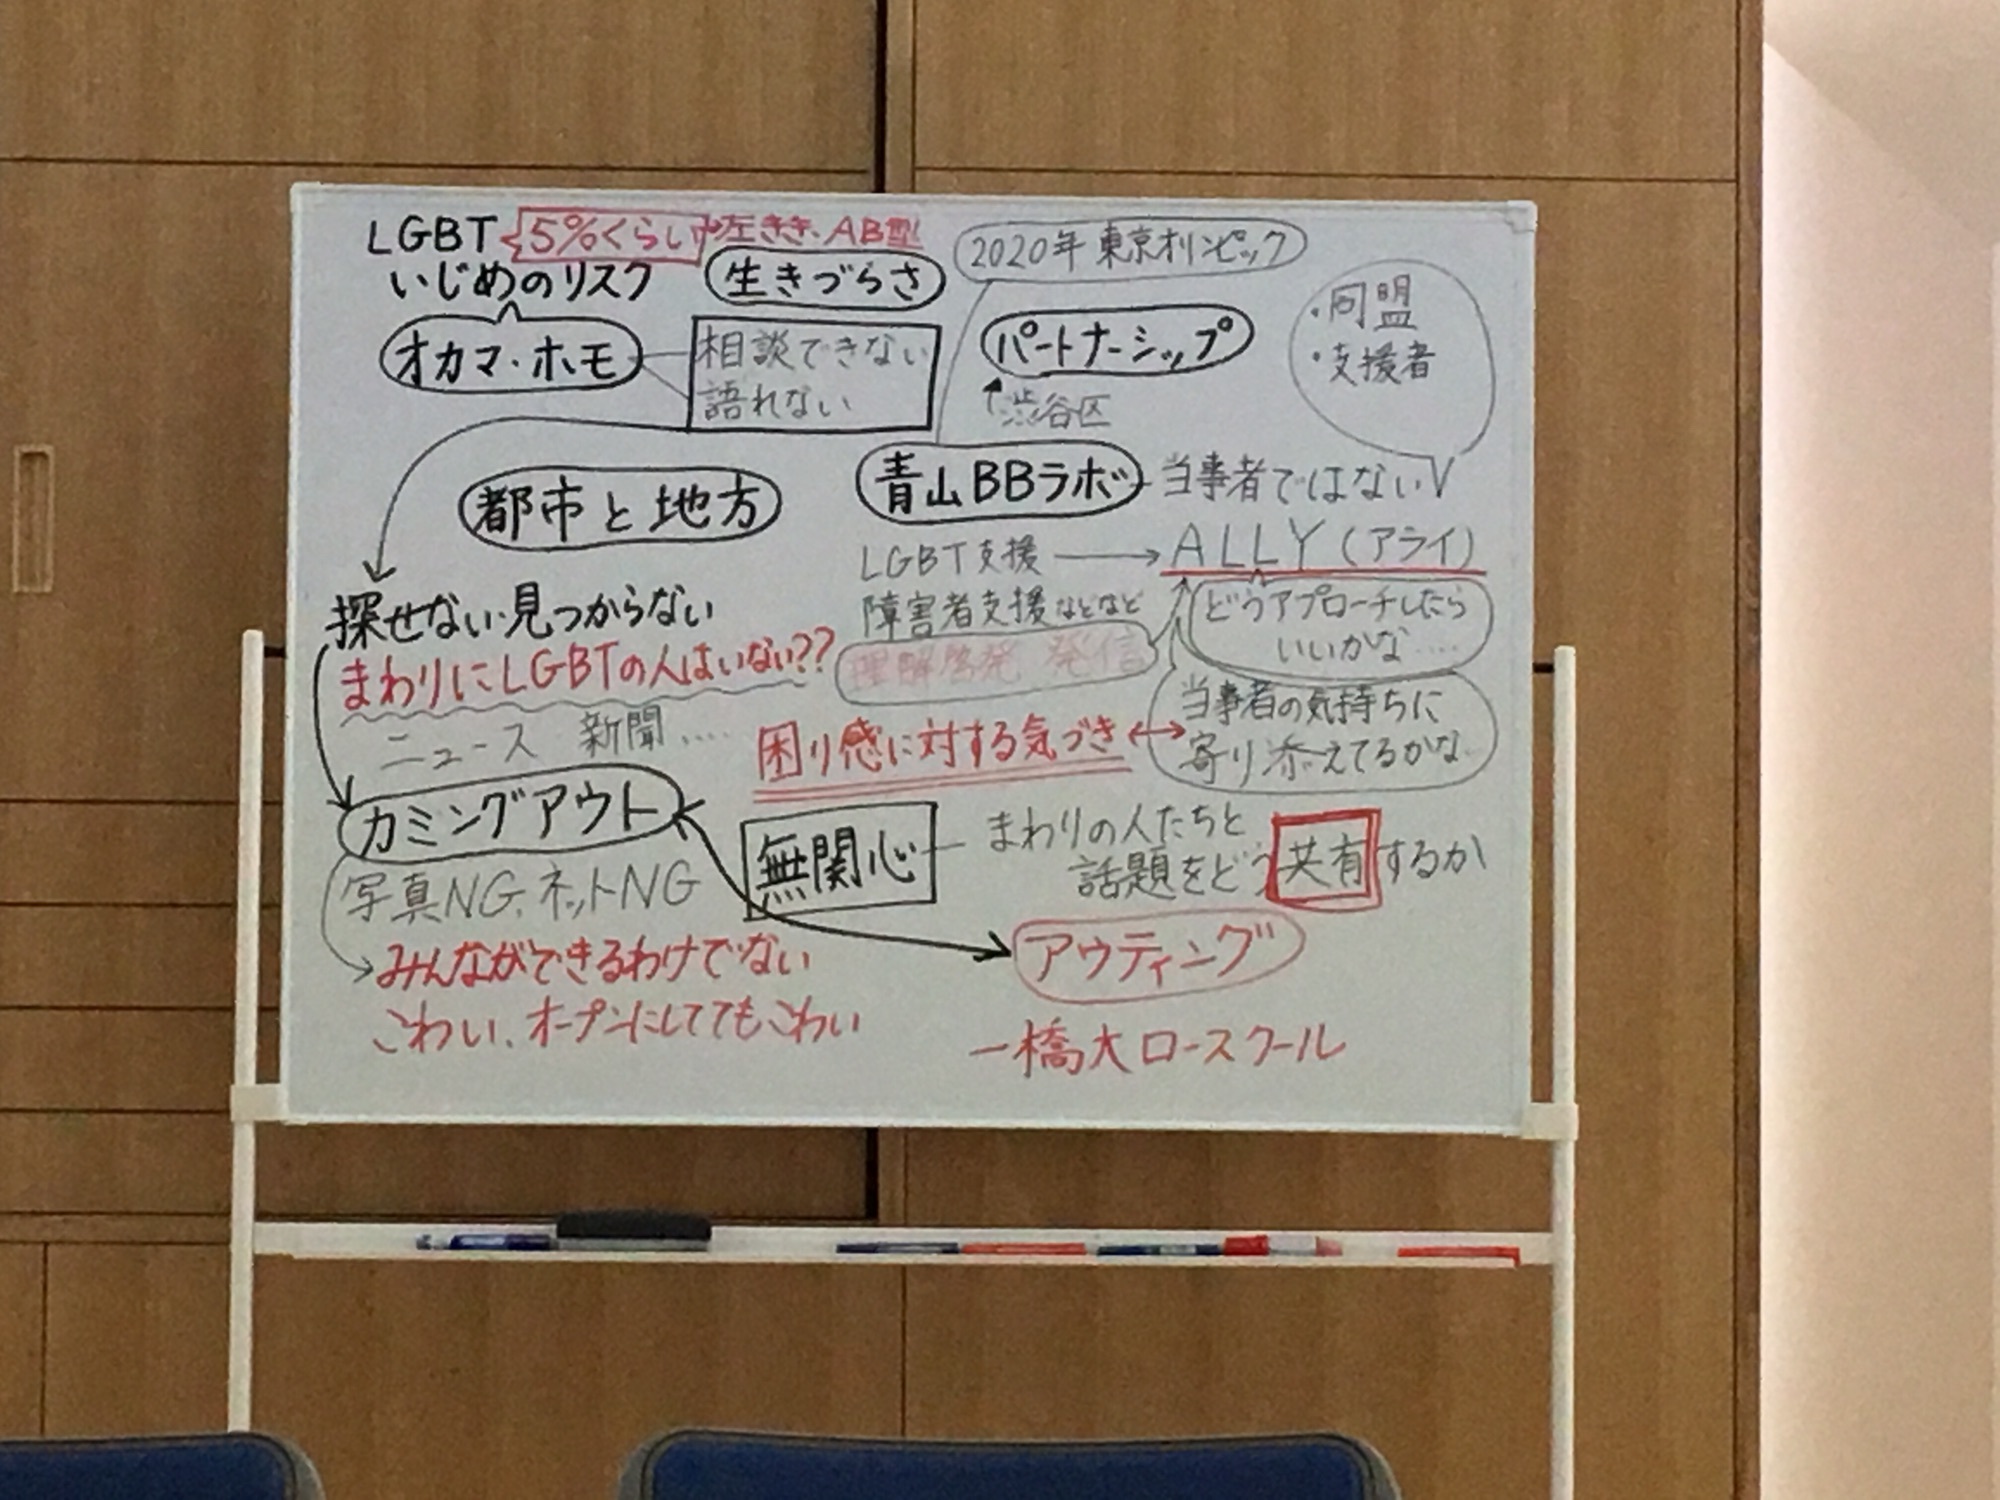 LGBT 5%くらい 左きき、AB型
いじめのリスク
生きづらさ
オカマ・ホモ
相談できない
語れない
都市と地方
探せない・見つからない
まわりにLGBTの人はいない??
ニュース 新聞....
カミングアウト
写真NG、ネットNG
みんなができるわけでない
こわい、オープンにしててもこわい
2020年 東京オリンピック
パートナーシップ
渋谷区
・同盟
・支援者
青山BBラボ 当事者ではない
LGBT支援 → ALLY(アライ)
障害者支援などなど
理解啓発 発信
どうアプローチしたら
いいかな....
当事者の気持ちに
寄り添えてるかな..
困り感に対する気づき
無関心
まわりの人たちと
話題をどう共有するか
アウティング
一橋大ロースクール